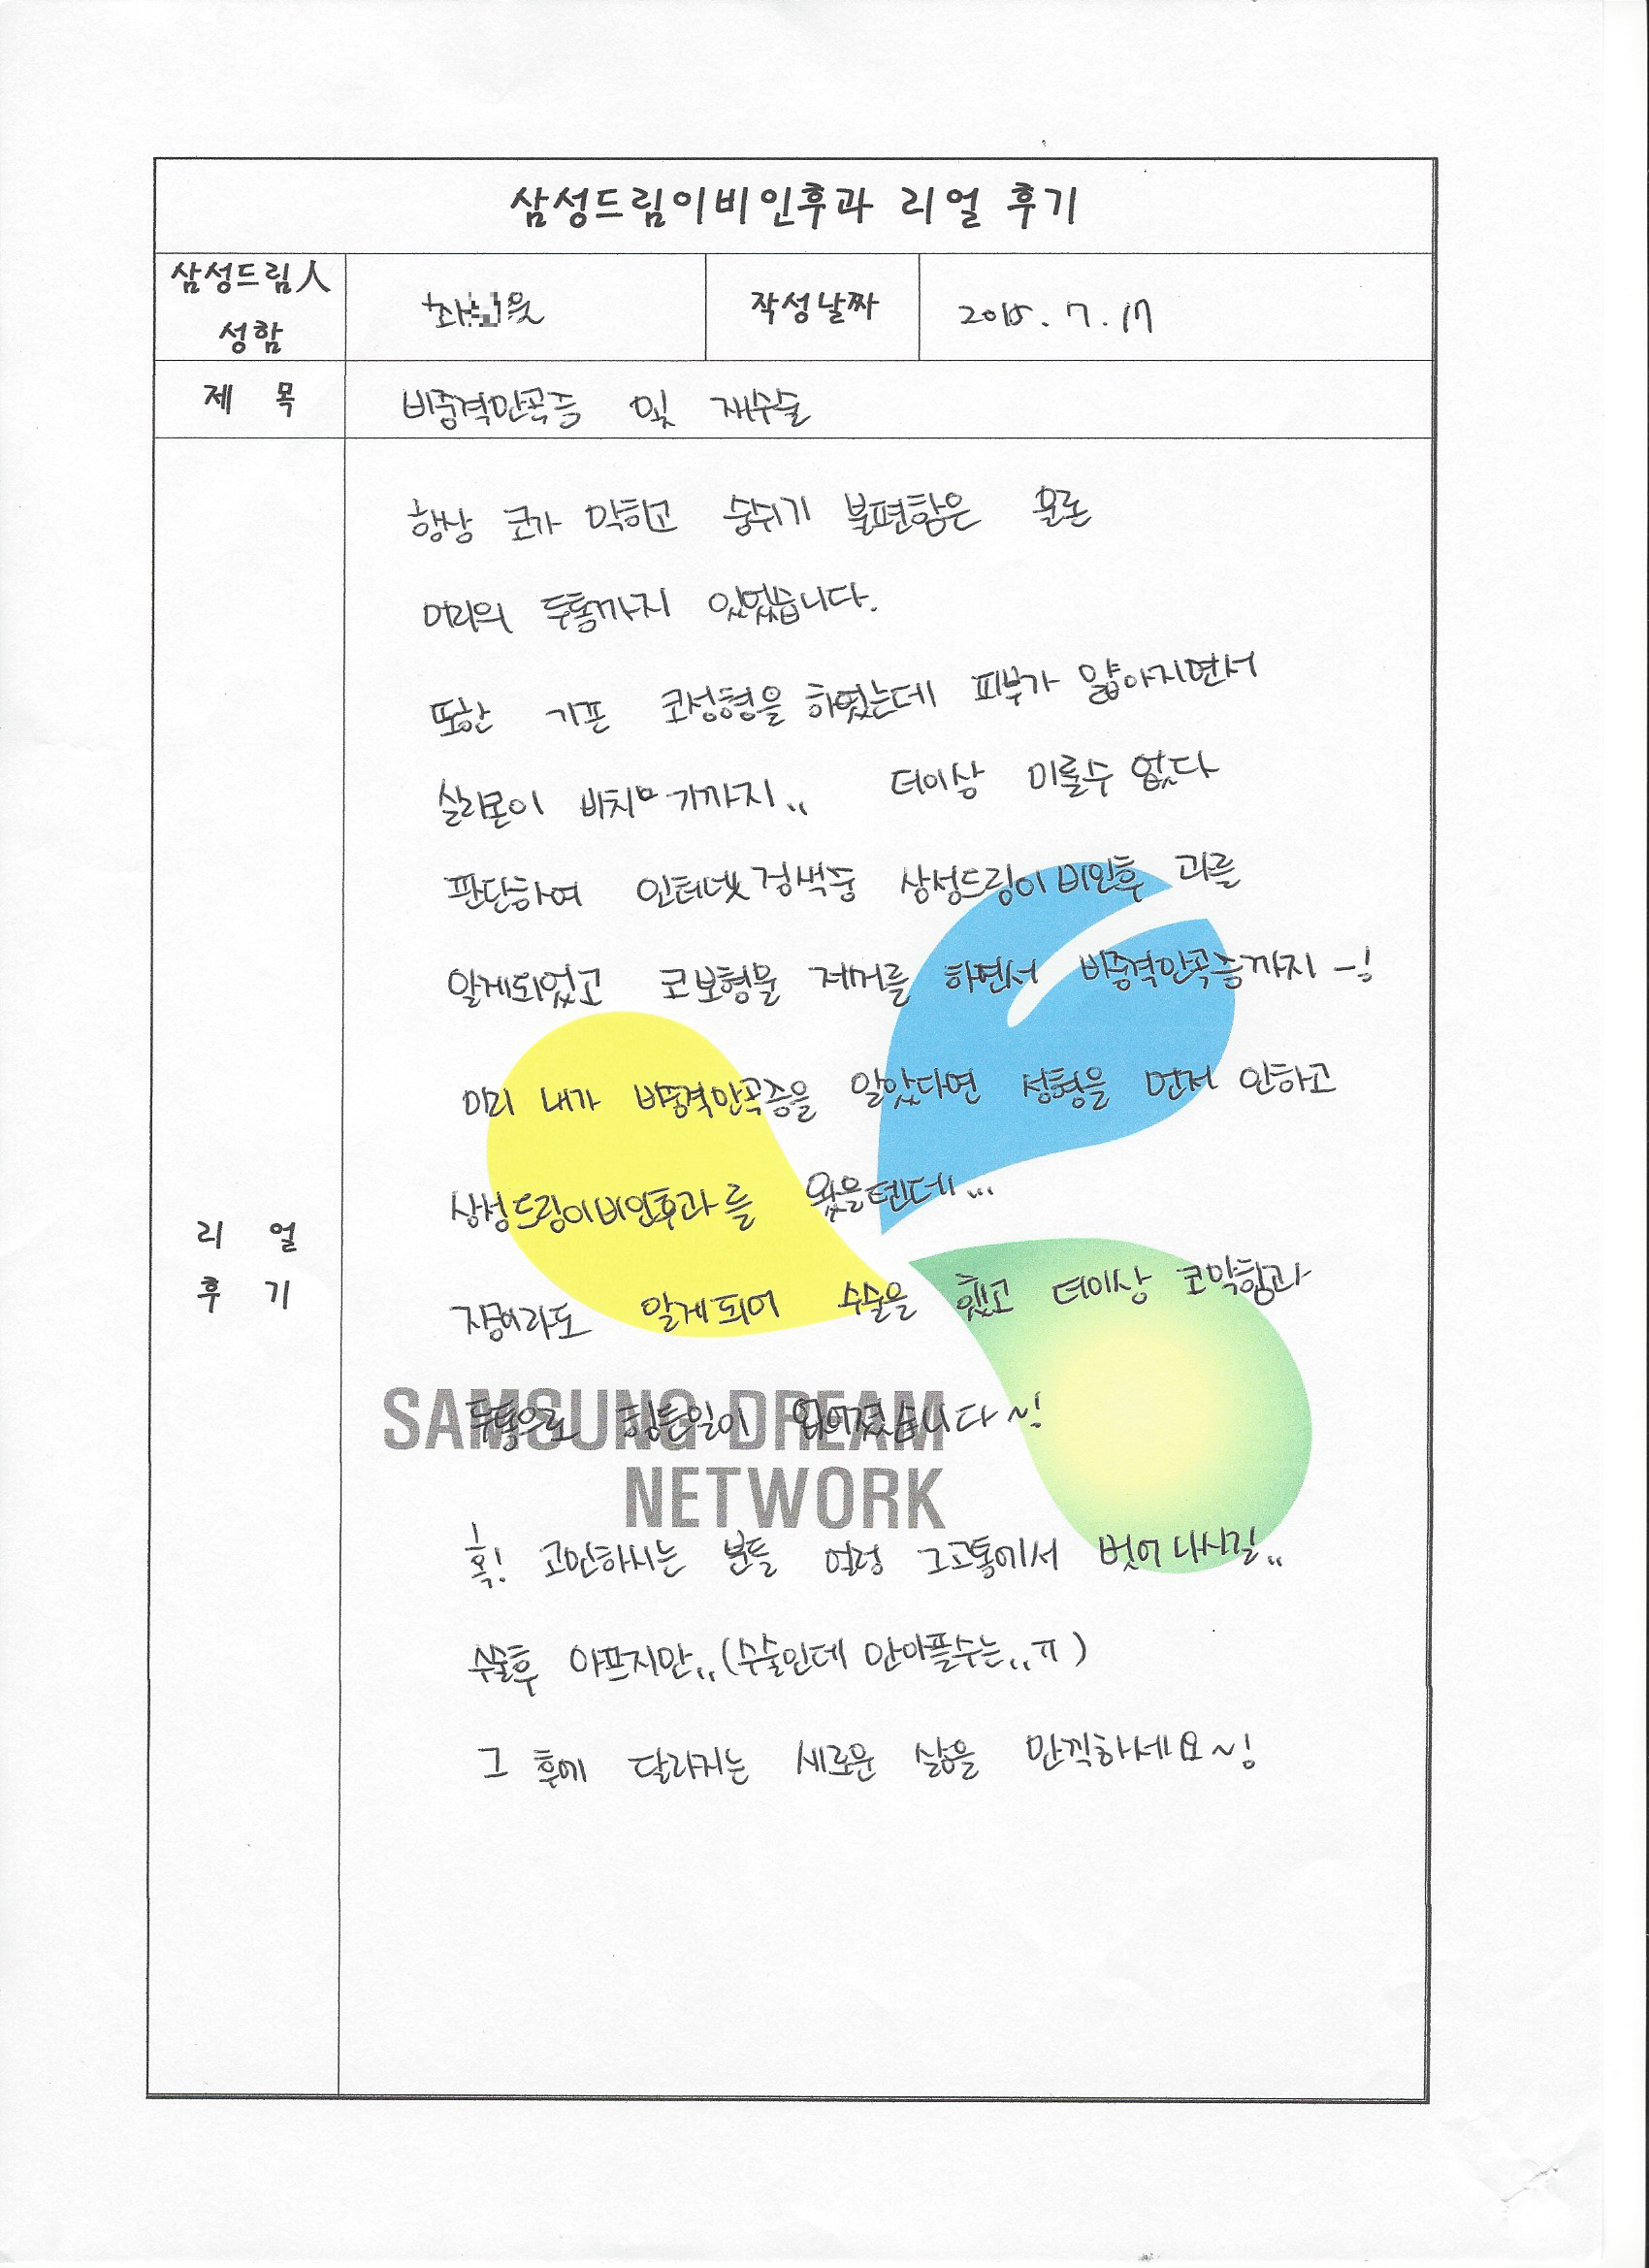 삼성드림이비인후과 리얼 후기
삼성드림人
성함
작성날짜
2015. 7. 17
제 목
비중격만곡증 및 재수술
항상 코가 막히고 숨쉬기 불편함은 물론
머리의 두통까지 있었습니다.
또한 기존 코성형을 하였는데 피부가 얇아지면서
실리콘이 비치기까지.. 더이상 미룰수 없다
판단하여 인터넷 검색중 삼성드림이비인후과를
알게되었고 코보형물 제거를 하면서 비중격만곡증까지-!
미리 내가 비중격만곡증을 알았다면 성형을 먼저 안하고
삼성드림이비인후과를 왔을텐데...
지금이라도 알게되어 수술을 했고 더이상 코막힘과
두통으로 힘든일이 없어졌습니다~!
SAMSUNG DREAM
NETWORK
혹! 고민하시는 분들 얼렁 그고통에서 벗어나시길..
수술후 아프지만..(수술인데 안아플수는..ㅠ)
그 후에 달라지는 새로운 삶을 만끽하세요~!
리 얼
후 기